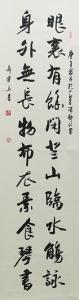 眼裏有餘閑登山臨水觴詠
身外無長物布衣素食琴書